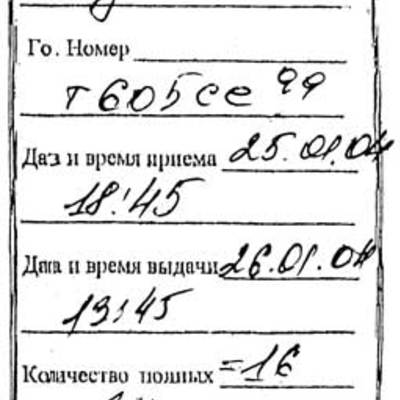 Го. Номер
т605се 99
Даз и время приема 25.01.04
18:45
Дта и время выдачи 26.01.04
13:45
Количество полных =16